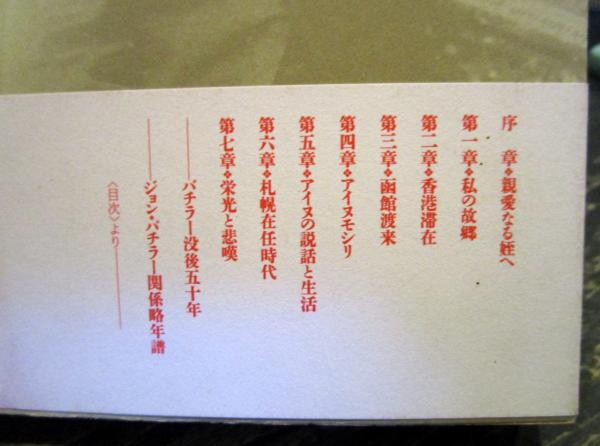 序　章❖親愛なる姪へ
第一章❖私の故郷
第二章❖香港滞在
第三章❖函館渡来
第四章❖アイヌモシリ
第五章❖アイヌの説話と生活
第六章❖札幌在任時代
第七章❖栄光と悲嘆
――バチラー没後五十年
――ジョン・バチラー関係略年譜
〈目次〉より――